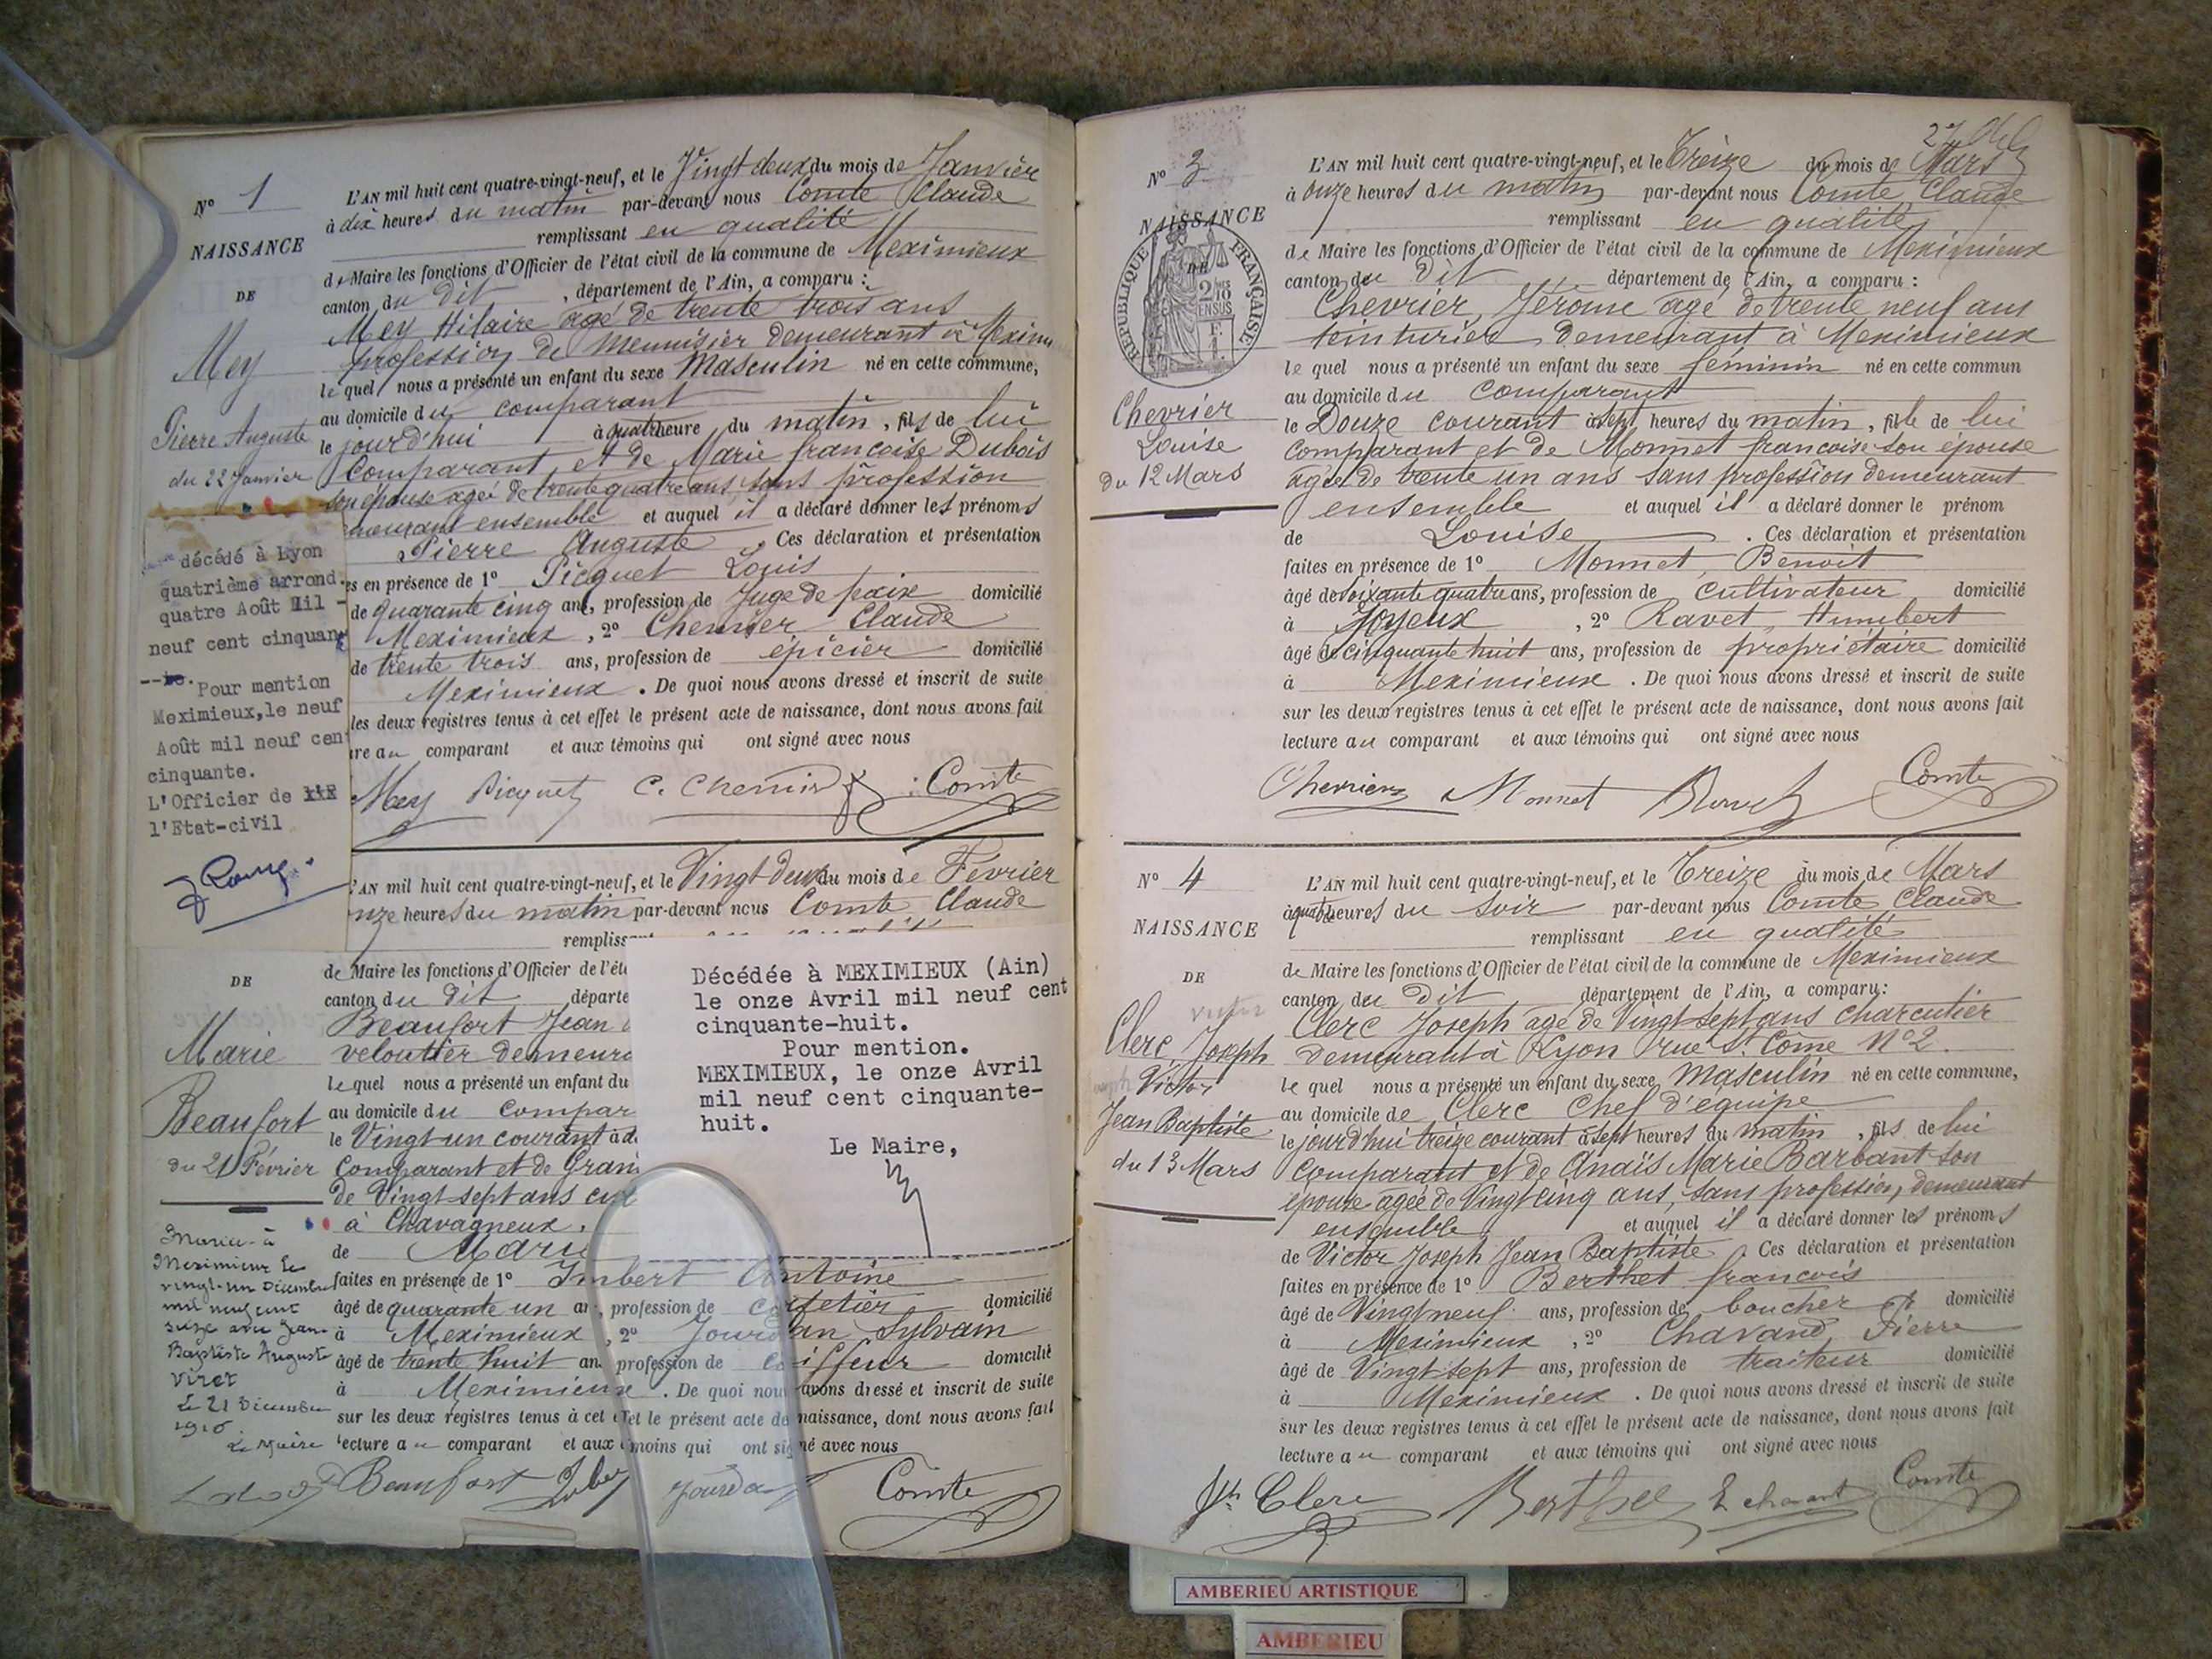 N° 1
NAISSANCE
DE
Mey
Pierre Auguste
du 22 Janvier
décédé à Lyon
quatrième arrond.
quatre Août mil -
neuf cent cinquan
Pour mention
Meximieux, le neuf
Août mil neuf cen
cinquante.
L'Officier de
l'Etat-civil
L'AN mil huit cent quatre-vingt-neuf, et le Vingt deux du mois de Janvier
à dix heures du matin par-devant nous Comte Claude
remplissant en qualité
de Maire les fonctions d'Officier de l'état civil de la commune de Meximieux
canton du dit , département de l'Ain, a comparu :
Mey Hilaire agé de trente trois ans
profession de Menuisier demeurant à Meximi
le quel nous a présenté un enfant du sexe Masculin né en cette commune,
au domicile du comparant
le jourd'hui à quatre heure du matin, fils de lui
Comparant et de Marie françoise Dubois
son épouse agée de trente quatre ans, sans profession
meurant ensemble et auquel il a déclaré donner les prénoms
Pierre Auguste . Ces déclaration et présentation
es en présence de 1° Picquet Louis
de quarante cinq ans, profession de Juge de paix domicilié
Meximieux , 2° Chemier Claude
de trente trois ans, profession de épicier domicilié
Meximieux . De quoi nous avons dressé et inscrit de suite
les deux registres tenus à cet effet le présent acte de naissance, dont nous avons fait
re au comparant et aux témoins qui ont signé avec nous
Mey Picquet C. Chemier Comte
DE
Marie
Beaufort
du 21 Février
Mariée à
Meximieux le
vingt-un Décembre
mil neuf cent
seize avec Jean
Baptiste Auguste
Viret
Le 21 Décembre
1916
Le Maire
'AN mil huit cent quatre-vingt-neuf, et le Vingt deux du mois de Février
nze heures du matin par-devant nous Comte Claude
rempliss
de Maire les fonctions d'Officier de l'ét
canton du dit départe
Beaufort Jean
veloutier demeura
le quel nous a présenté un enfant du
au domicile du Compar
le Vingt un courant à d
Comparant et de Gran
de Vingt sept ans
à Chavagneux,
de Marie
faites en présence de 1° Imbert Antoine
âgé de quarante un an , profession de cafetier domicilié
à Meximieux , 2° Jourdan Sylvain
âgé de trente huit an profession de Coiffeur domicilié
à Meximieux . De quoi nous avons dressé et inscrit de suite
sur les deux registres tenus à cet effet le présent acte de naissance, dont nous avons fait
lecture au comparant et aux témoins qui ont signé avec nous
Beaufort Jourdan Comte
Décédée à MEXIMIEUX (Ain)
le onze Avril mil neuf cent
cinquante-huit.
Pour mention.
MEXIMIEUX, le onze Avril
mil neuf cent cinquante-
huit.
Le Maire,
27
N° 3
NAISSANCE
DE
RÉPUBLIQUE FRANÇAISE
Chevrier
Louise
du 12 Mars
L'AN mil huit cent quatre-vingt-neuf, et le Treize du mois de Mars
à onze heures du matin par-devant nous Comte Claude
remplissant en qualité
de Maire les fonctions d'Officier de l'état civil de la commune de Meximieux
canton du dit département de l'Ain, a comparu :
Chevrier, Jérome agé de trente neuf ans
teinturier demeurant à Meximieux
le quel nous a présenté un enfant du sexe féminin né en cette commun
au domicile du comparant
le Douze courant à sept heures du matin, fille de lui
comparant et de Monnet francoise son épouse
agée de trente un ans sans profession demeurant
ensemble et auquel il a déclaré donner le prénom
de Louise . Ces déclaration et présentation
faites en présence de 1° Monnet, Benoit
âgé de soixante quatre ans, profession de cultivateur domicilié
à Joyeux , 2° Ravet, Humbert
âgé de cinquante huit ans, profession de propriétaire domicilié
à Meximieux . De quoi nous avons dressé et inscrit de suite
sur les deux registres tenus à cet effet le présent acte de naissance, dont nous avons fait
lecture au comparant et aux témoins qui ont signé avec nous
Chevrier Monnet Ravet Comte
N° 4
NAISSANCE
DE
Victor
Clerc, Joseph
Victor
Jean Baptiste
du 13 Mars
L'AN mil huit cent quatre-vingt-neuf, et le Treize du mois de Mars
à quatre heures du soir par-devant nous Comte Claude
remplissant en qualité
de Maire les fonctions d'Officier de l'état civil de la commune de Meximieux
canton du dit département de l'Ain, a comparu:
Clerc Joseph agé de Vingt sept ans charcutier
demeurant à Lyon rue St. Côme N° 2.
le quel nous a présenté un enfant du sexe Masculin né en cette commune,
au domicile de Clerc Chef d'équipe
le jourd'hui treize courant à sept heures du matin , fils de lui
comparant et de Anaïs Marie Barbant son
épouse agée de Vingt cinq ans, sans profession, demeurant
ensemble et auquel il a déclaré donner les prénoms
de Victor Joseph Jean Baptiste . Ces déclaration et présentation
faites en présence de 1° Berthet francois
âgé de Vingt neuf ans, profession de boucher domicilié
à Meximieux , 2° Chavand, Pierre
âgé de Vingt sept ans, profession de traiteur domicilié
à Meximieux . De quoi nous avons dressé et inscrit de suite
sur les deux registres tenus à cet effet le présent acte de naissance, dont nous avons fait
lecture au comparant et aux témoins qui ont signé avec nous
Jh Clerc Berthet Comte
AMBERIEU ARTISTIQUE
AMBERIEU